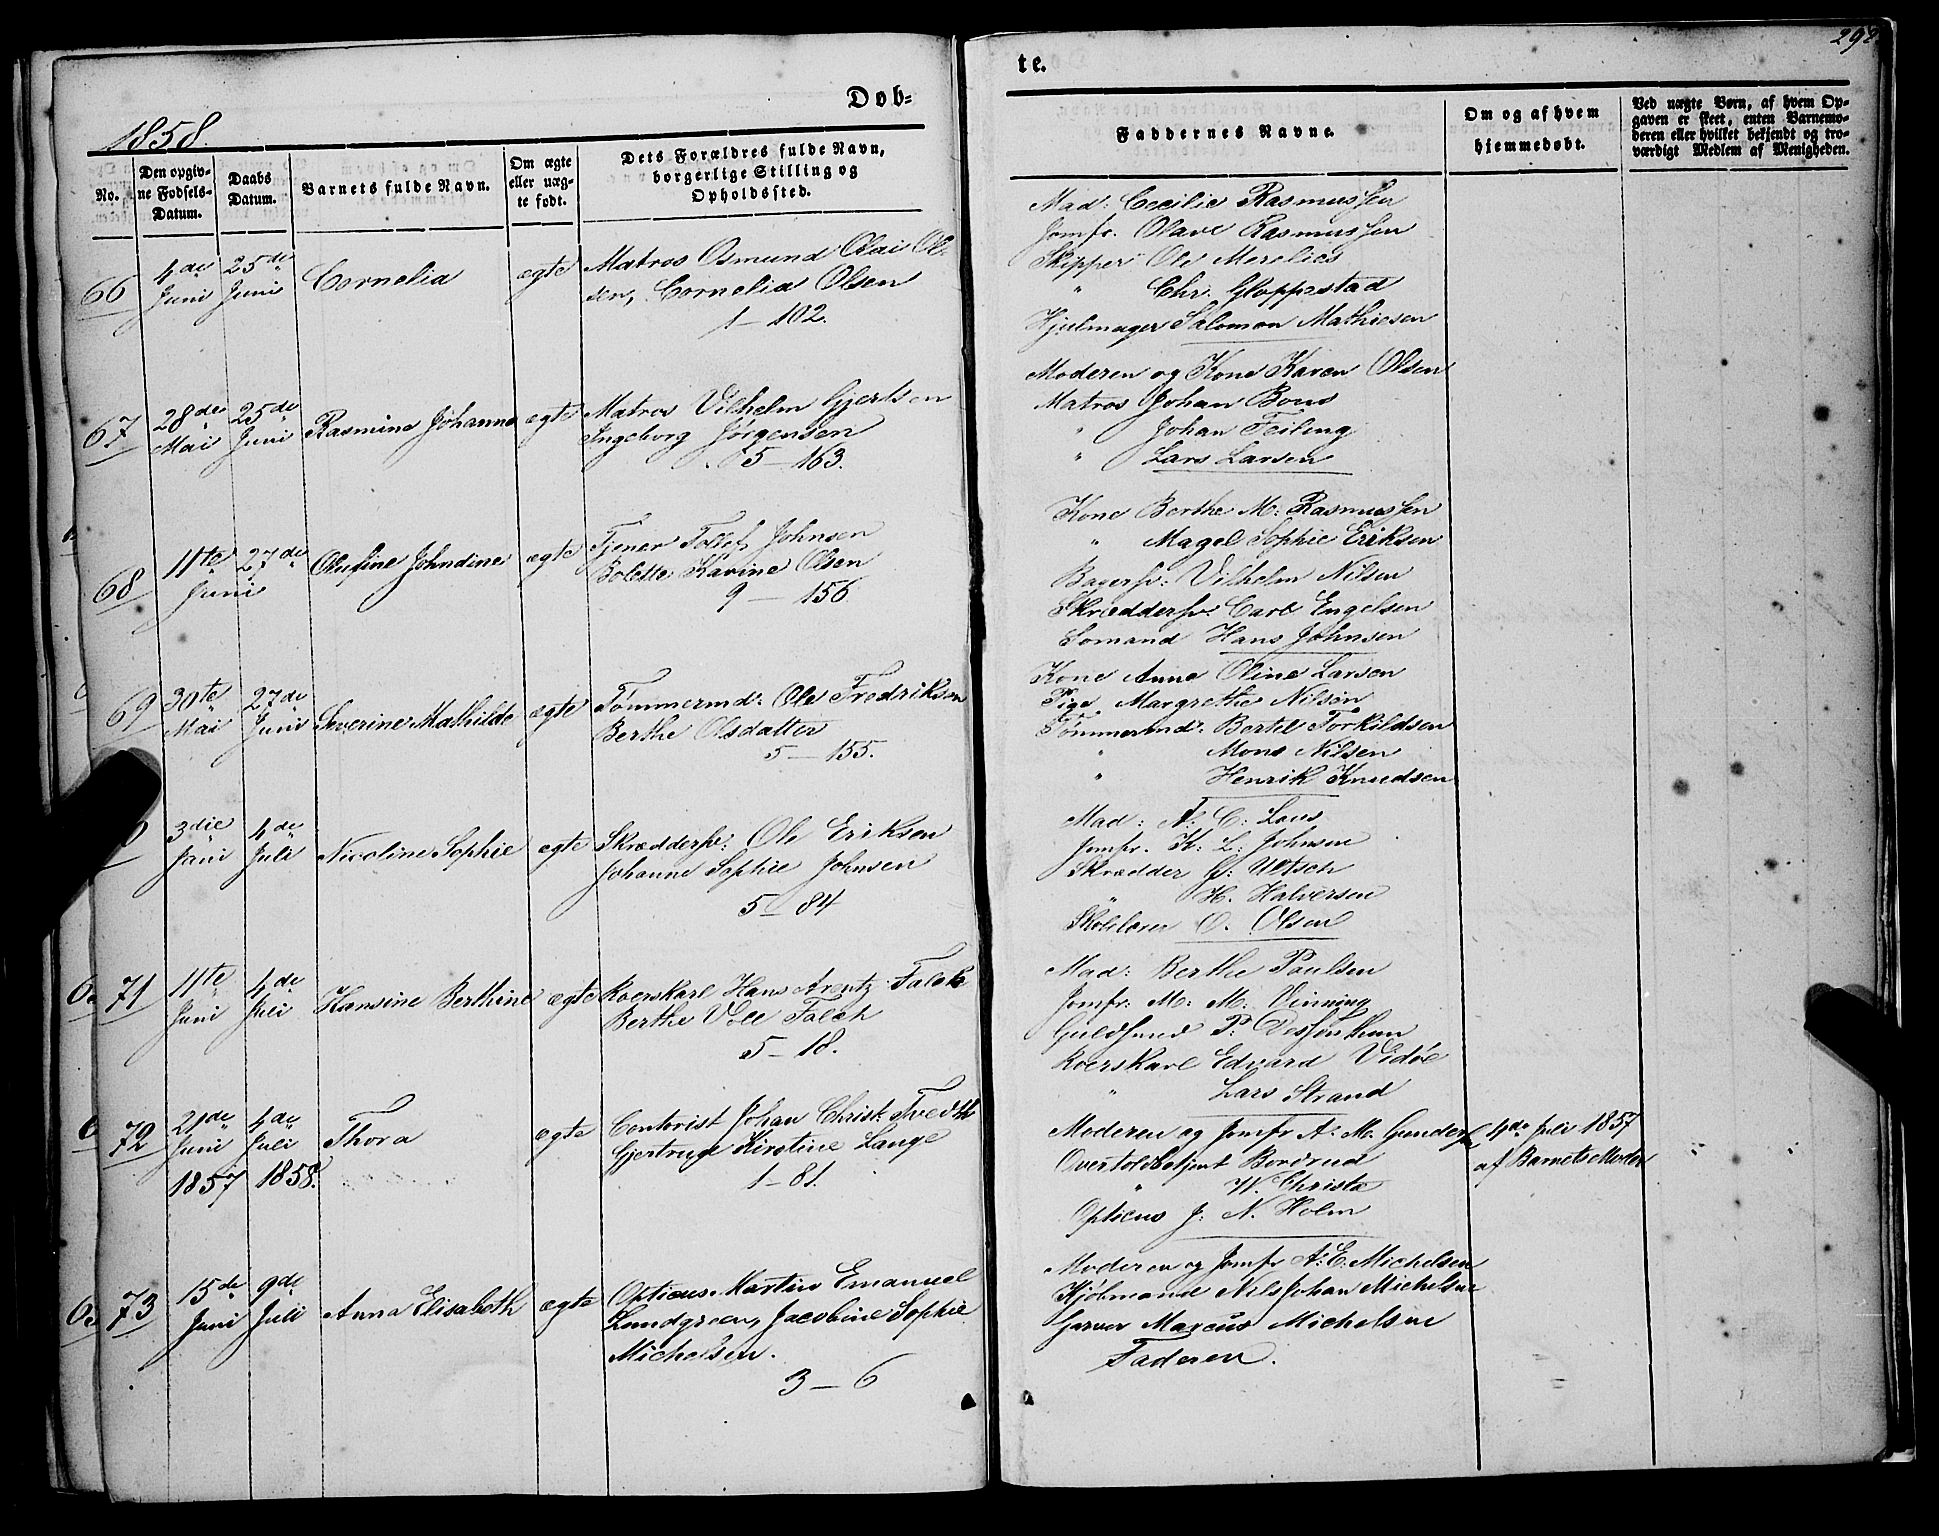 Døb=
1858.
No.
Den opgiv=
ne Fødsels=
Datum.
Daabs
Datum.
Barnets fulde Navn.
Om ægte
eller uæg=
te født.
Dets Forældres fulde Navn,
borgerlige Stilling og
Opholdssted.
66
4de Juni
25de Juni
Cornelia
ægte
Matros Osmund Olai Ol=
sen, Cornelia Olsen
1 – 102.
67
28de Mai
25de Juni
Rasmine Johanne
ægte
Matros Vilhelm Gjertsen
Ingeborg Jørgensen
5 – 163.
68
11te Juni
27de
Olufine Johndine
ægte
Tjener Tollef Johnsen
Bolette Karine Olsen
9 – 156
69
30te Mai
27de Juni
Severine Mathilde
ægte
Tømmermd: Ole Fredriksen
Berthe Olsdatter
5 – 155.
3die Juni
4de Juli
Nicoline Sophie
ægte
Skræddersv: Ole Eriksen
Johanne Sophie Johnsen
5 – 84
71
11te Juni
4de Juli
Hansine Berthine
ægte
Roerskarl Hans Arentz Falck
Berthe Voll Falch
5 – 18.
72
21de Juni 1857
4de Juli 1858.
Thora
ægte
Contorist Johan Christ: Tvedth
Gjertruge Kirstine Lange
1 – 81.
73
15de Juni
9de Juli
Anna Elisabeth
ægte
Opticus Martin Emanuel
Lundgreen, Jacobine Sophie
Michelsen.
3 – 6
te.
292
Faddernes Navne.
Om og af hvem
hjemmedøbt.
Ved uægte Børn, af hvem Op=
gaven er skeet, enten Barnemo=
deren eller hvilket bekjendt og tro=
værdigt Medlem af Menigheden.
Mad: Cecilie Rasmussen
Jomfr. Olave Rasmussen
Skipper Ole Merelies
" Chr. Gloppestad
Hjulmager Salomon Mathiesen
Moderen og Kone Karen Olsen
Matros Johan Bons
" Johan Feiling
" Lars Larsen
Kone Berthe M: Rasmussen
" Magel Sophie Eriksen
Bagersv: Vilhelm Nilsen
Skræddersv: Carl Engelsen
Sømand Hans Johnsen
Kone Anne Oline Larsen
Pige Margrethe Nilsen
Tømmermd: Bertel Torkildsen
" Mons Nilsen
" Henrik Knudsen
Mad: A: C: Lous
Jomfr. K: L: Johnsen
Skrædder
" H. Halversen
Skolelærer O. Olsen
Mad: Berthe Paulsen
Jomfr: M: M: Vinning
Guldsmed P:
Roerskarl Edvard Vidøe
" Lars Strand
Moderen og Jomfr A: M. Gundersen
Overtoldbetjent Bordrud
" W. Christe
Opticus J: N. Holm
4de Juli 1857
af Barnets Moder
Moderen og Jomfr A: E. Michelsen
Kjøbmand Nils Johan Michelsen
Garver Marcus Michelsen
Faderen.